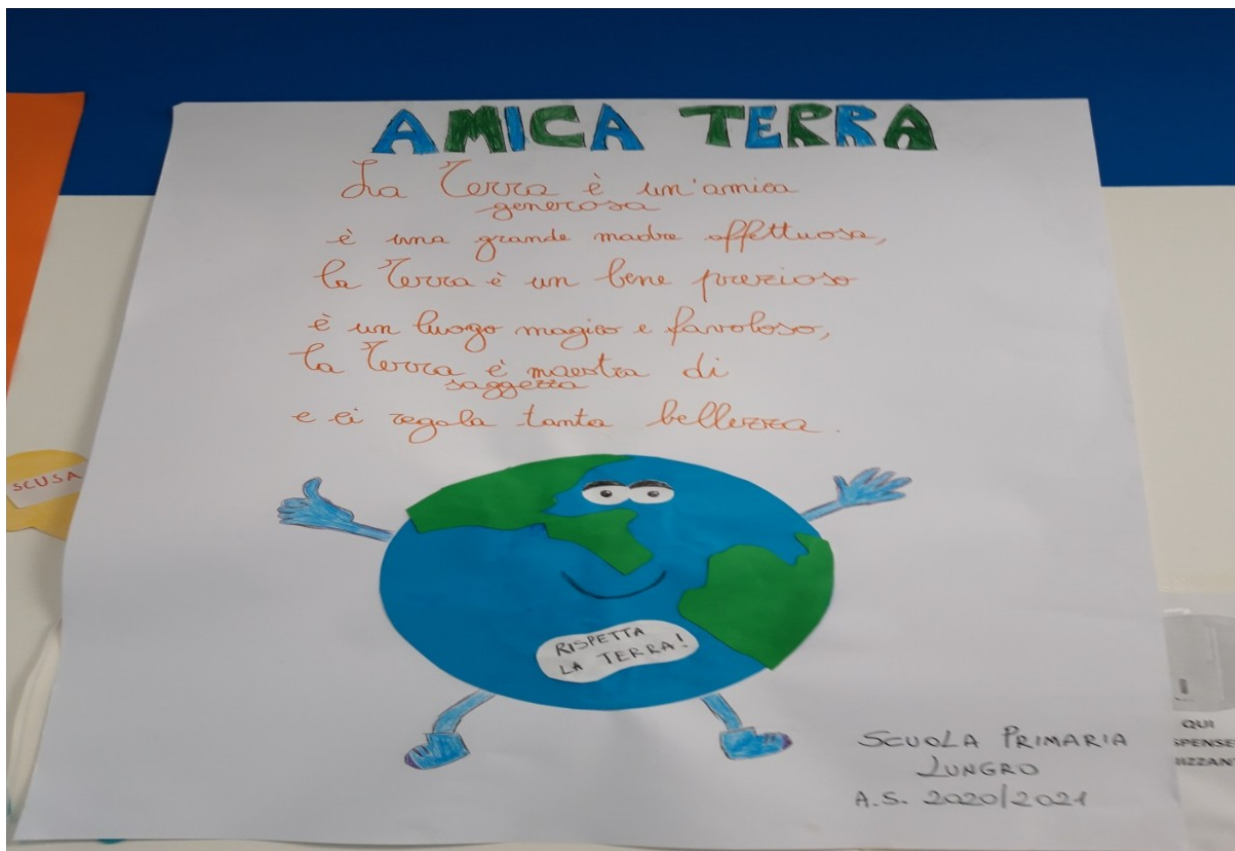 AMICA TERRA
La Terra è un'amica
generosa
è una grande madre affettuosa,
la Terra è un bene prezioso
è un luogo magico e favoloso,
la Terra è maestra di
saggezza
e ci regala tanta bellezza.
SCUSA
RISPETTA
LA TERRA!
SCUOLA PRIMARIA
LUNGRO
A.S. 2020/2021
QUI